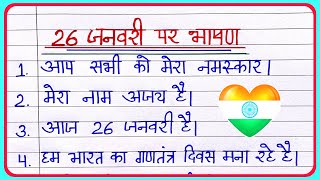 26 जनवरी पर भाषण
1. आप सभी को मेरा नमस्कार।
2. मेरा नाम अजय है।
3. आज 26 जनवरी है।
4. हम भारत का गणतंत्र दिवस मना रहे है।